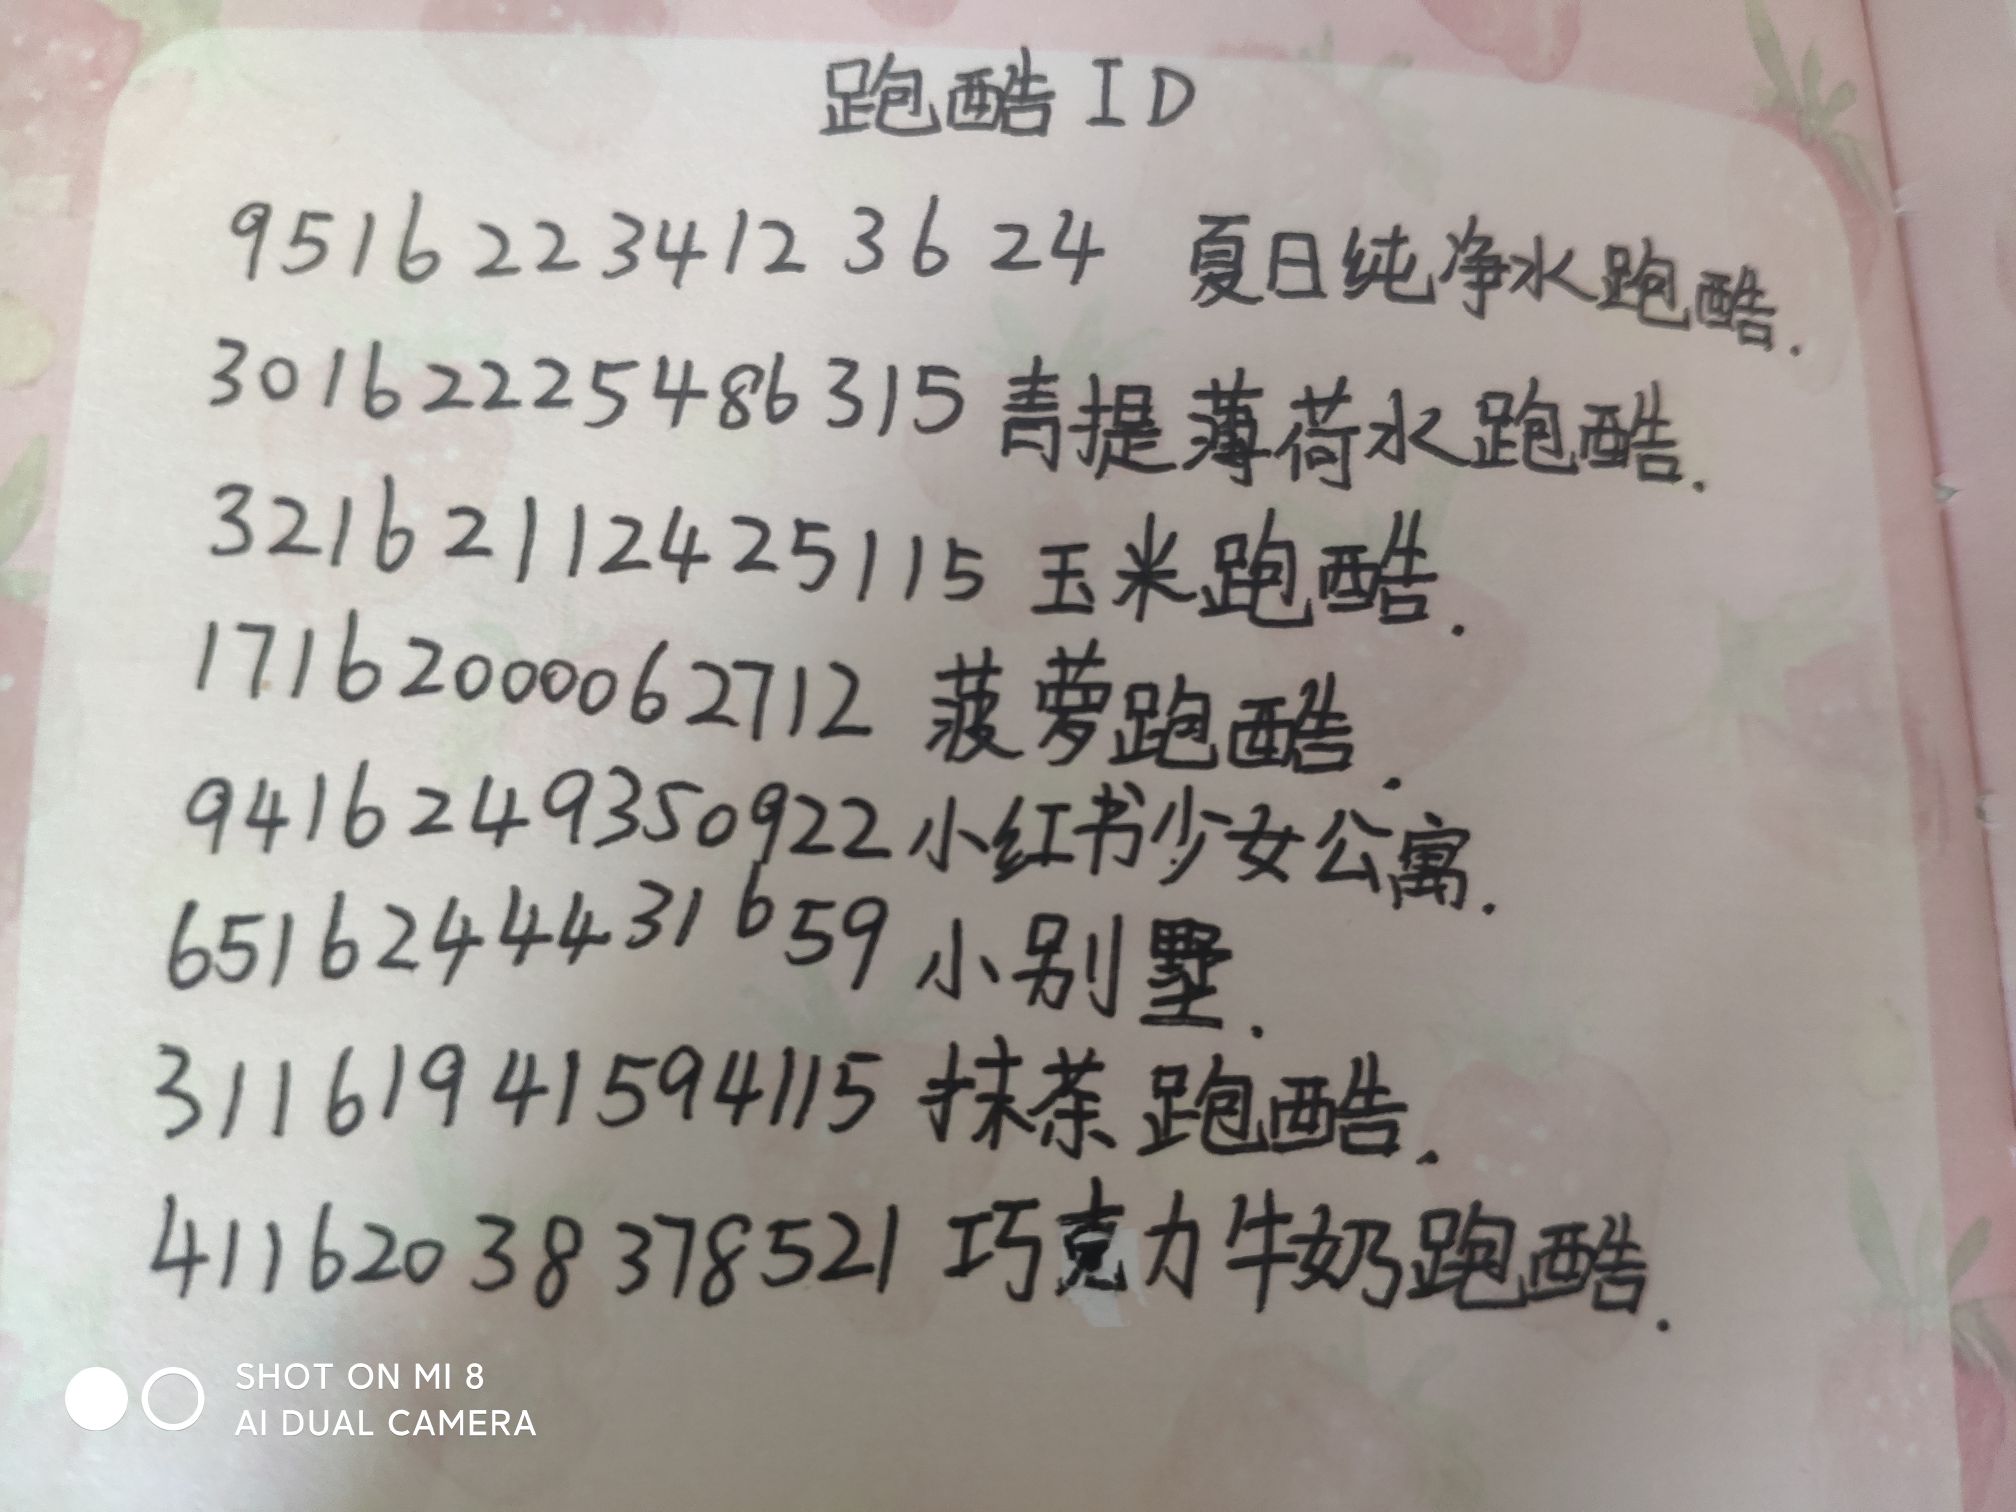 跑酷ID
95162234123624 夏日纯净水跑酷.
30162225486315 青提薄荷水跑酷.
32162112425115 玉米跑酷.
17162000062712 菠萝跑酷.
9416249350922 小红书少女公寓.
6516244431659 小别墅.
31161941594115 抹茶跑酷.
41162038378521 巧克力牛奶跑酷.
SHOT ON MI 8
AI DUAL CAMERA